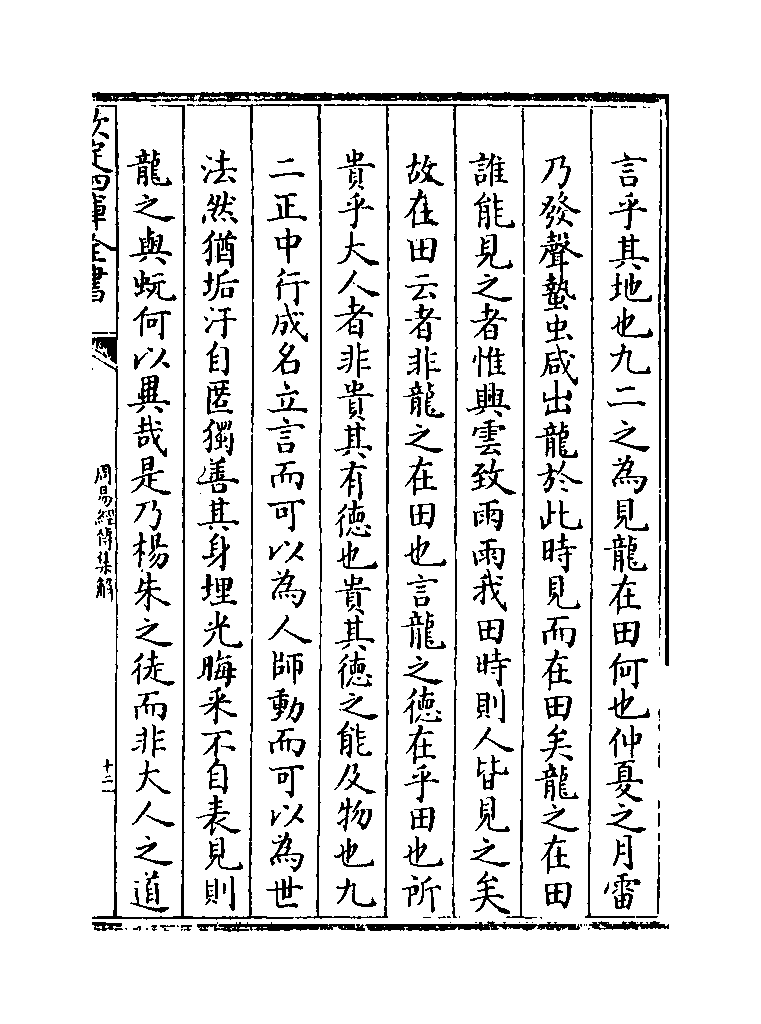 言乎其地也九二之為見龍在田何也仲夏之月雷
乃發聲蟄虫咸出龍於此時見而在田矣龍之在田
誰能見之者惟興雲致雨雨我田時則人皆見之矣
故在田云者非龍之在田也言龍之徳在乎田也所
貴乎大人者非貴其有徳也貴其徳之能及物也九
二正中行成名立言而可以為人師動而可以為世
法然猶垢汙自匿獨善其身埋光晦采不自表見則
龍之與蚖何以異哉是乃楊朱之徒而非大人之道
欽定四庫全書
周易經傳集解
十二